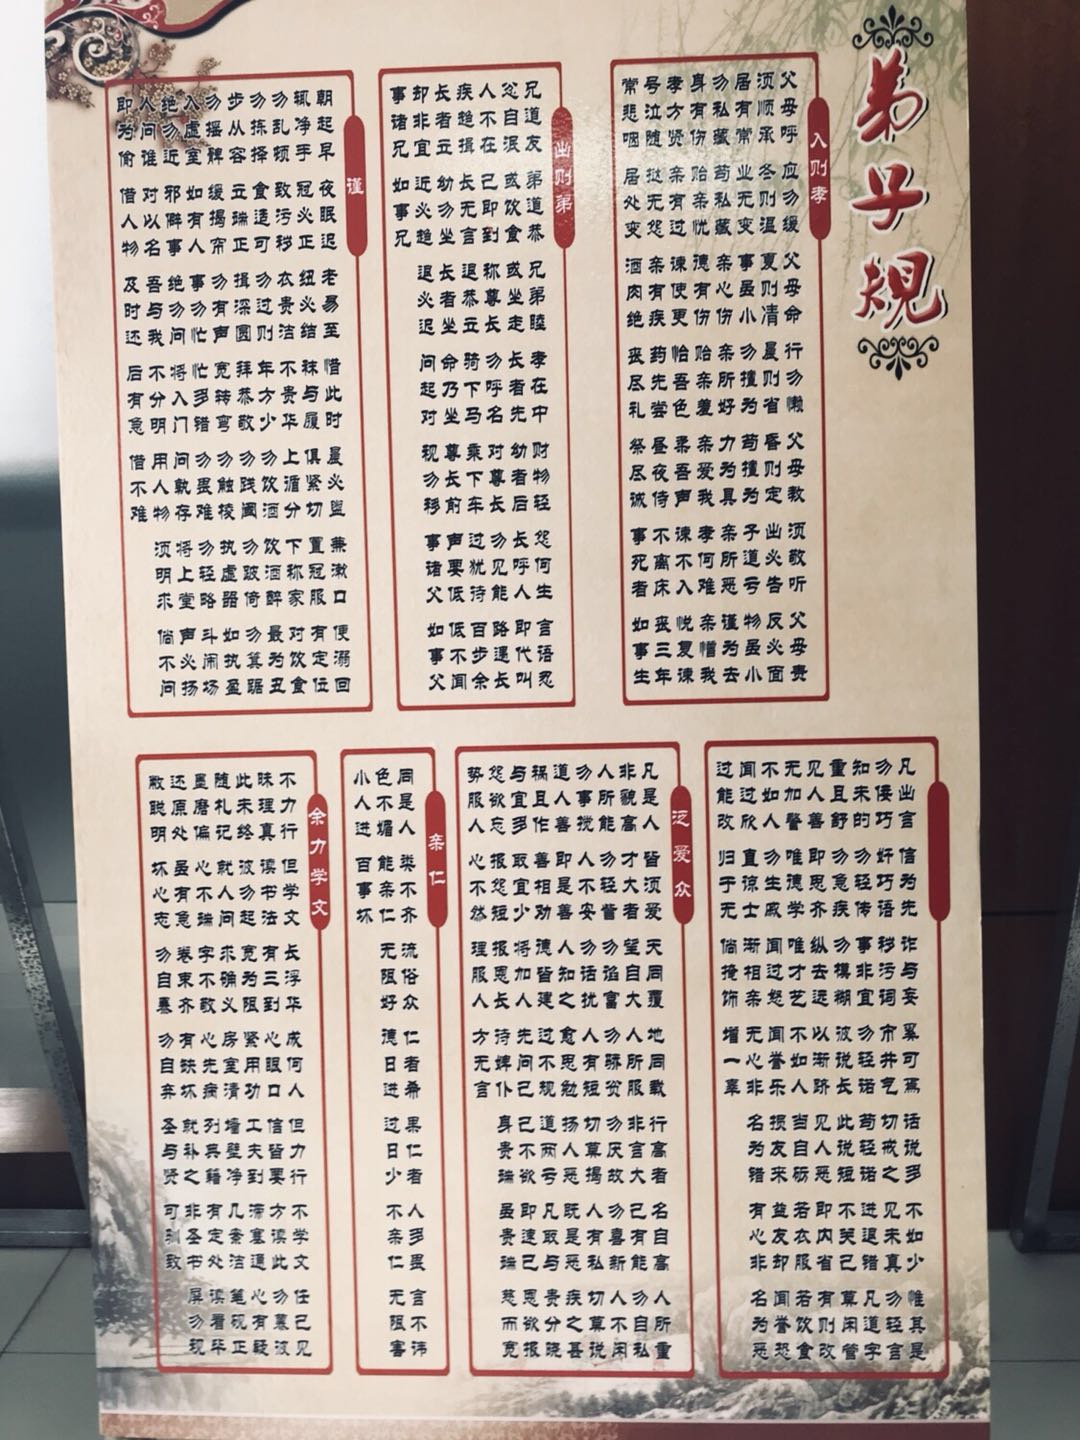 弟子规
入则孝
父母呼 应勿缓 父母命 行勿懒 父母教 须敬听 父母责
须顺承 冬则温 夏则凊 晨则省 昏则定 出必告 反必面
居有常 业无变 事虽小 勿擅为 苟擅为 子道亏 物虽小
勿私藏 苟私藏 亲心伤 亲所好 力为具 亲所恶 谨为去
身有伤 贻亲忧 德有伤 贻亲羞 亲爱我 孝何难 亲憎我
孝方贤 亲有过 谏使更 怡吾色 柔吾声 谏不入 悦复谏
号泣随 挞无怨 亲有疾 药先尝 昼夜侍 不离床 丧三年
常悲咽 居处变 酒肉绝 丧尽礼 祭尽诚 事死者 如事生
出则弟
兄道友 弟道恭 兄弟睦 孝在中 财物轻 怨何生 言语忍
忿自泯 或饮食 或坐走 长者先 幼者后 长呼人 即代叫
人不在 己即到 称尊长 勿呼名 对尊长 勿见能 路遇长
疾趋揖 长无言 退恭立 骑下马 乘下车 过犹待 百步余
长者立 幼勿坐 长者坐 命乃坐 尊长前 声要低 低不闻
却非宜 近必趋 退必迟 问起对 视勿移 事诸父 如事父
事诸兄 如事兄
谨
朝起早 夜眠迟 老易至 惜此时 晨必盥 兼漱口 便溺回
辄净手 冠必正 纽必结 袜与履 俱紧切 置冠服 有定位
勿乱顿 致污秽 衣贵洁 不贵华 上循分 下称家 对饮食
勿拣择 食适可 勿过则 年方少 勿饮酒 饮酒醉 最为丑
步从容 立端正 揖深圆 拜恭敬 勿践阈 勿跛倚 勿箕踞
勿摇髀 缓揭帘 勿有声 宽转弯 勿触棱 执虚器 如执盈
入虚室 如有人 事勿忙 忙多错 勿畏难 勿轻略 斗闹场
绝勿近 邪僻事 绝勿问 将入门 问孰存 将上堂 声必扬
人问谁 对以名 吾与我 不分明 用人物 须明求 倘不问
即为偷 借人物 及时还 后有急 借不难
凡出言 信为先 诈与妄 奚可焉 话说多 不如少 惟其是
勿佞巧 奸巧语 秽污词 市井气 切戒之 见未真 勿轻言
知未的 勿轻传 事非宜 勿轻诺 苟轻诺 进退错 凡道字
重且舒 勿急疾 勿模糊 彼说长 此说短 不关己 莫闲管
见人善 即思齐 纵去远 以渐跻 见人恶 即内省 有则改
无加警 唯德学 唯才艺 不如人 当自砺 若衣服 若饮食
不如人 勿生戚 闻过怒 闻誉乐 损友来 益友却 闻誉恐
闻过欣 直谅士 渐相亲 无心非 名为错 有心非 名为恶
过能改 归于无 倘掩饰 增一辜
泛爱众
凡是人 皆须爱 天同覆 地同载 行高者 名自高 人所重
非貌高 才大者 望自大 人所服 非言大 己有能 勿自私
人所能 勿轻訾 勿谄富 勿骄贫 勿厌故 勿喜新 人不闲
勿事搅 人不安 勿话扰 人有短 切莫揭 人有私 切莫说
道人善 即是善 人知之 愈思勉 扬人恶 既是恶 疾之甚
祸且作 善相劝 德皆建 过不规 道两亏 凡取与 贵分晓
与宜多 取宜少 将加人 先问己 己不欲 即速已 恩欲报
怨欲忘 报怨短 报恩长 待婢仆 身贵端 虽贵端 慈而宽
势服人 心不然 理服人 方无言
亲仁
同是人 类不齐 流俗众 仁者希 果仁者 人多畏 言不讳
色不媚 能亲仁 无限好 德日进 过日少 不亲仁 无限害
小人进 百事坏
余力学文
不力行 但学文 长浮华 成何人 但力行 不学文 任己见
昧理真 读书法 有三到 心眼口 信皆要 方读此 勿慕彼
此未终 彼勿起 宽为限 紧用功 工夫到 滞塞通 心有疑
随札记 就人问 求确义 房室清 墙壁净 几案洁 笔砚正
墨磨偏 心不端 字不敬 心先病 列典籍 有定处 读看毕
还原处 虽有急 卷束齐 有缺坏 就补之 非圣书 屏勿视
敝聪明 坏心志 勿自暴 勿自弃 圣与贤 可驯致